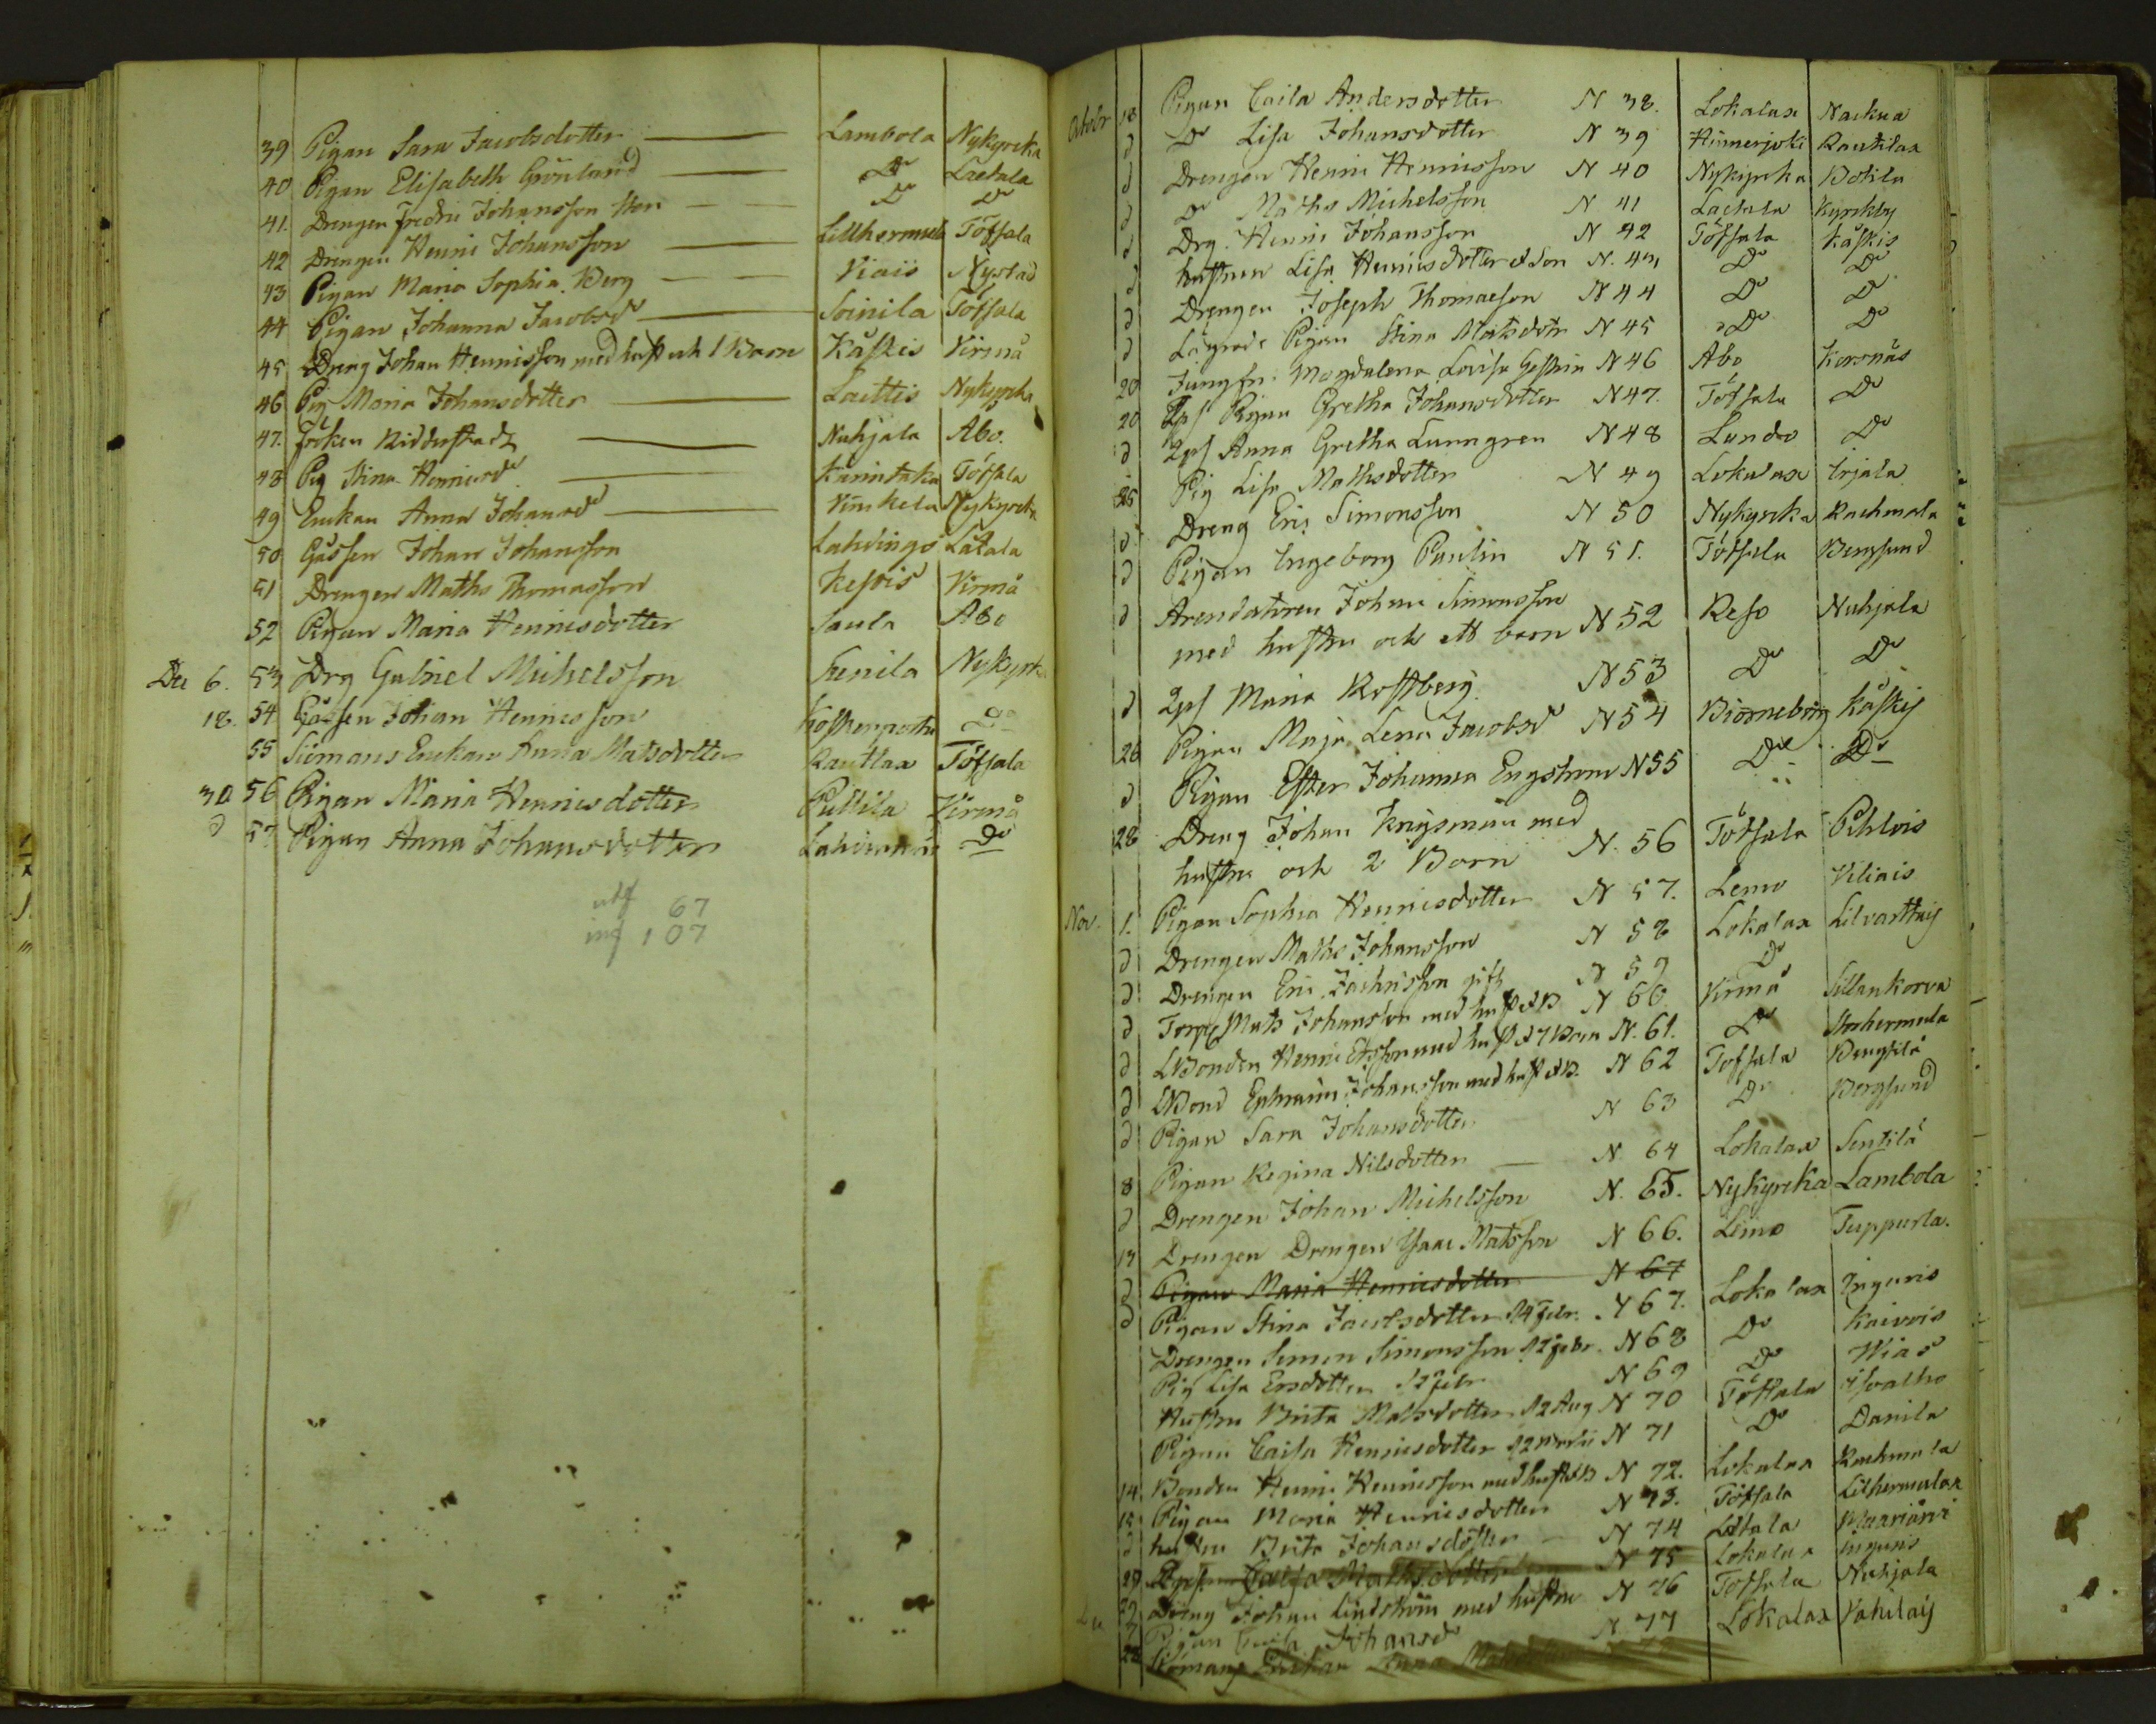 39 Pigan Sara Jacobsdotter Lambola Nykyrcka
40 Pigan Elisabeth Grönlund Do Laitala
41. Drengen Fredric Johansson Do Do
42 Drengen Henric Johansson Lillhermula Töfsala
43 Pigan Maria Sophia Berg Viais Nystad
44 Pigan Johanna Jacobsdr Soinila Töfsala
45 Dreng Johan Hennisson med hust och 1 Barn Kåskis Virmå
46 Pig Maria Johansdotter Laittis Nykyrcka
47. Fröken Ridderstadz Nuhjala Åbo.
48 Pig Stina Henricsdr Töfsala
49 Enckan Anna Johansdr Nykyrcka
50 Gåssen Johan Johansson Lahdingo Låtala
51 Drengen Maths Thomasson Kessois Virmå
52 Pigan Maria Henricsdotter Saula Åbo
Dec 6. 53 Drg Gabriel Michelsson Sunila Nykyrka
18. 54 Gåssen Johan Henricsson Do
55 Enckan Anna Matsdotter Rautlax Töfsala
30 56 Pigan Maria Henricsdotter Puttila Virmå
d 57 Pigan Anna Johansdotter Do
utf 67
inf 107
Octobr 18 Pigan Caisa Andersdotter N 38. Lokalax Nackua
d Do Lisa Johansdotter N 39 Hinnerjoki Rautilax
d Drengen Henric Henricsson N 40 Nykyrcka Botila
d Do Maths Michelsson N 41 Laitala Kyrckby
d Drg. Henric Johansson N 42 Töfsala Kåskis
d hustrun Lisa Henricsdotter N. 43 Do Do
d Drengen Joseph Thomasson N 44 Do Do
d Lägrade Pigan Stina Matsdotr N 45 Do Do
20 Jungfru Magdalena Lovisa N 46 Åbo Korsnäs
20 Qps Pigan Gretha Johansdotter N 47. Töfsala Do
d Qps Anna Gretha Lunngren N 48 Lundo Do
25 Pig Lisa Mathsdotter N 49 Lokalax Irjala
d. Dreng Eric Simonsson N 50 Nykyrcka Rachmala
d Pigan Ingeborg Paulin N 51. Töfsala Bergsund
d Arendatoren Johan Simonsson
med hustru och ett barn N 52 Reso Nuhjala
d Qps Maria Rostberg N 53 Do Do
26 Pigan Maja Lena Jacobsdr N 54 Biörneborg Kåskis
d Pigan Ester Johanna Engstrom N 55 Do Do
28 Dreng Johan Krigsman med
hustru och 2 Barn N. 56 Töfsala Pihlois
Nov. 1. Pigan Sophia Henricsdotter N 57. Lemo Viliais
d Drengen Maths Johansson N 58 Lokalax Lilvarttais
d Drengen Eric Zachrisson gift N 59 Do
d Torp Mats Johansson med hust N 60 Virmå Sillankorva
d LBonden Henric Ersson med hust & 7 Barn N. 61. Do Storhermula
d LBond Ephraim Johansson med hust &B. N 62 Tofsala Bengtilä
d Pigan Sara Johansdotter N 63 Do Bergsund
8 Pigan Regina Nilsdotter N. 64 Lokalax Sentilä
d Drengen Johan Michelsson N. 65. Nykyrcka Lambola
13 Drengen Drengen Isaac Matsson N 66. Lemo Tuppurla.
d Pigan Maria Henricsdotter N 67
d Pigan Stina Jacobsdotter 14 Febr. N 67. Lokalax Inguris
Drengen Simon Simonsson 12 Febr. N 68 Do Kaivois
Pig Lisa Ersdotter 12 Febr N 69 Do Wias
Hustru Brita Mattsdotter 12 Aug N 70 Töfsala
Pigan Caisa Henricsdotter N 71 Do Danila
14. Bonden Henric Henricsson med hust&B N 72. Lokalax Rachmala
15 Pigan Maria Henricsdotter N 73. Töfsala Lilhermula
d hustru Brita Johansdotter N 74 Låtala
29 Caisa Mathsdotter N 75 Lokalax Inguris
Dreng Johan Lindström med hustru N 76 Tofsala Nuhjala
7 Pigan Caisa Johansdr N 77 Lokalax Vahilais
28 Enckan Anna